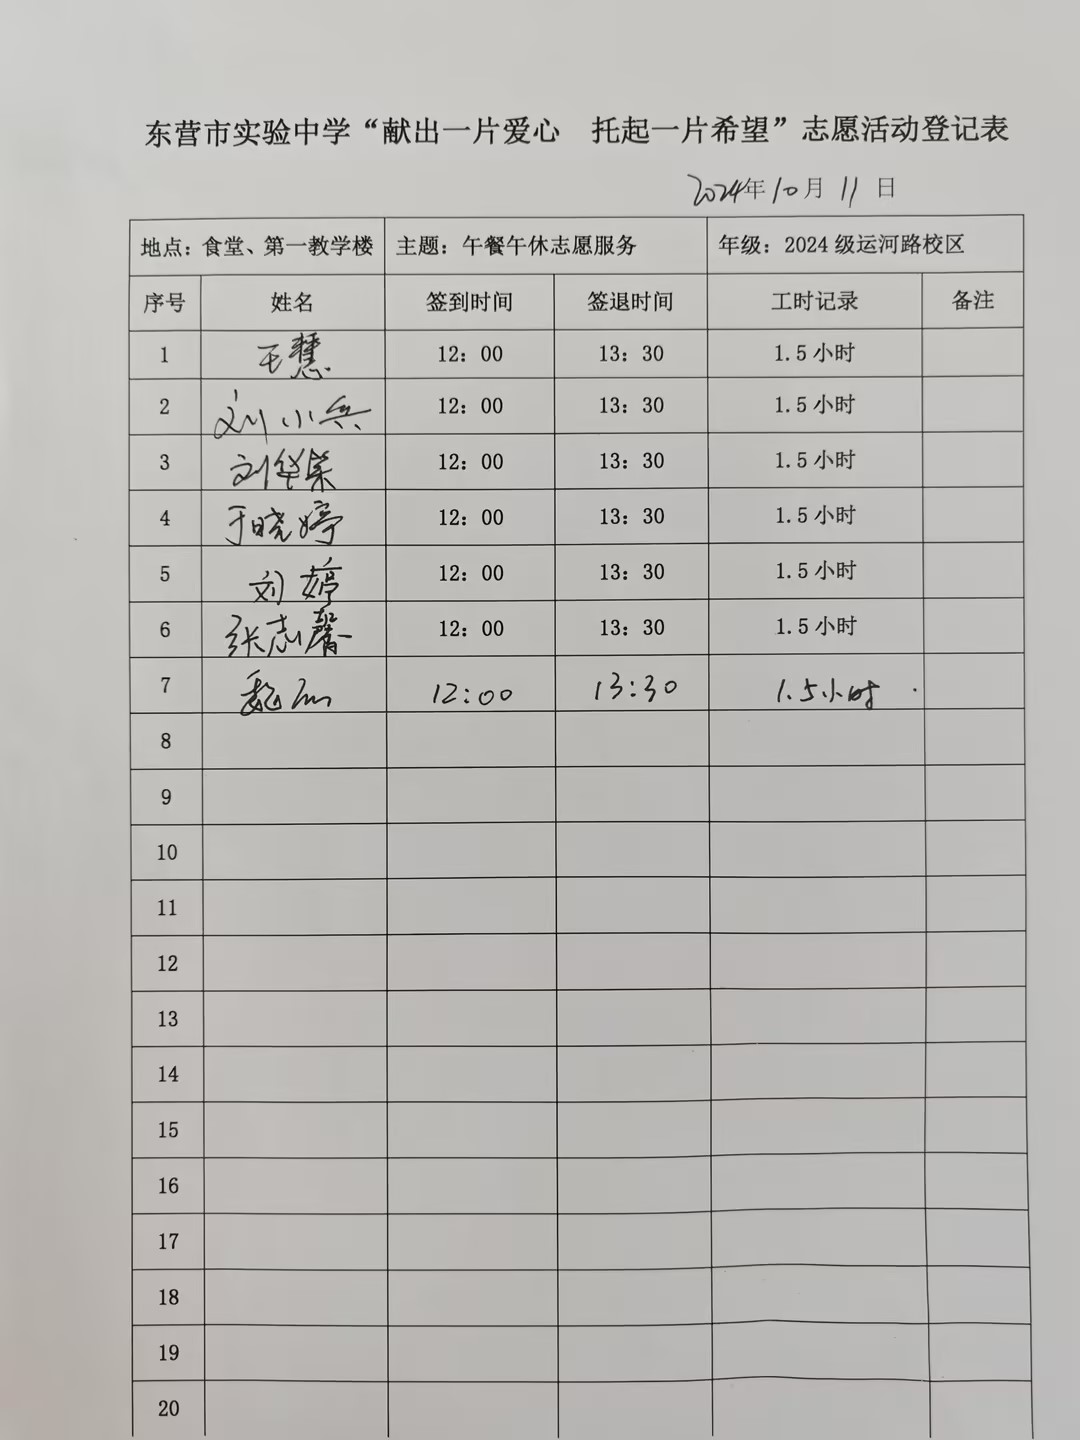 东营市实验中学“献出一片爱心 托起一片希望”志愿活动登记表
2024年10月11日
地点：食堂、第一教学楼 主题：午餐午休志愿服务 年级：2024级运河路校区
序号 姓名 签到时间 签退时间 工时记录 备注
1 王慧 12：00 13：30 1.5小时
2 刘小兵 12：00 13：30 1.5小时
3 刘华荣 12：00 13：30 1.5小时
4 于晓婷 12：00 13：30 1.5小时
5 刘婷 12：00 13：30 1.5小时
6 张志馨 12：00 13：30 1.5小时
7 魏 12:00 13:30 1.5小时
8
9
10
11
12
13
14
15
16
17
18
19
20